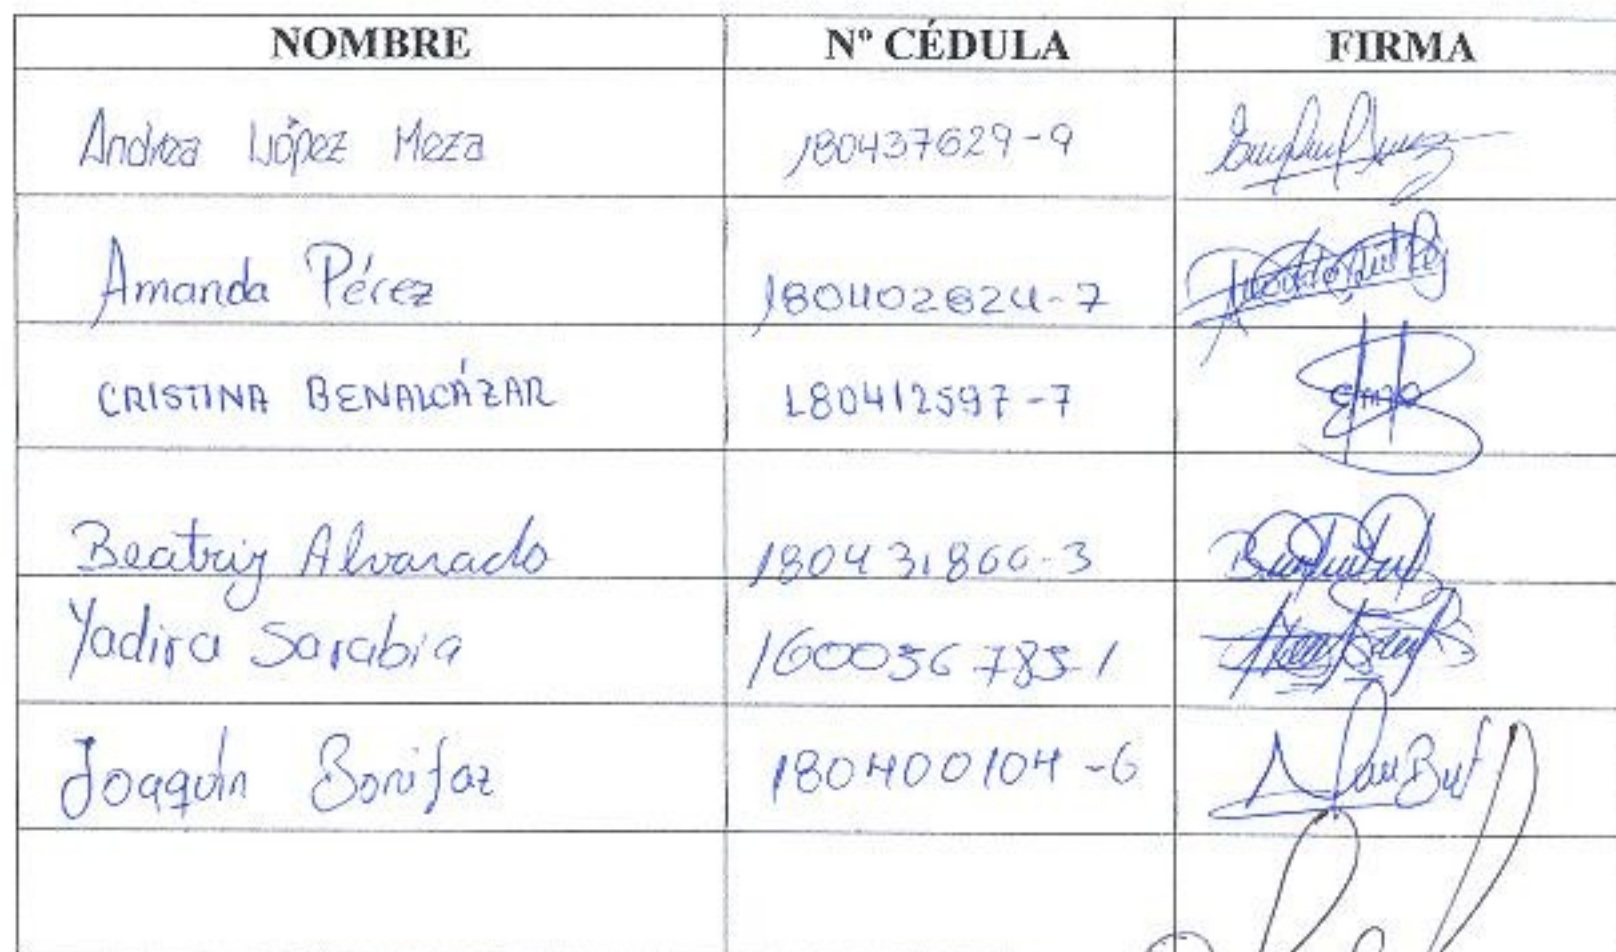 NOMBRE Nº CÉDULA FIRMA
Andrea López Meza 180437629-9
Amanda Pérez 180402624-7
CRISTINA BENALCÁZAR 180412597-7
Beatriz Alvarado 180431866-3
Yadira Sarabia 160056785-1
Joaquín Bonifaz 180400104-6